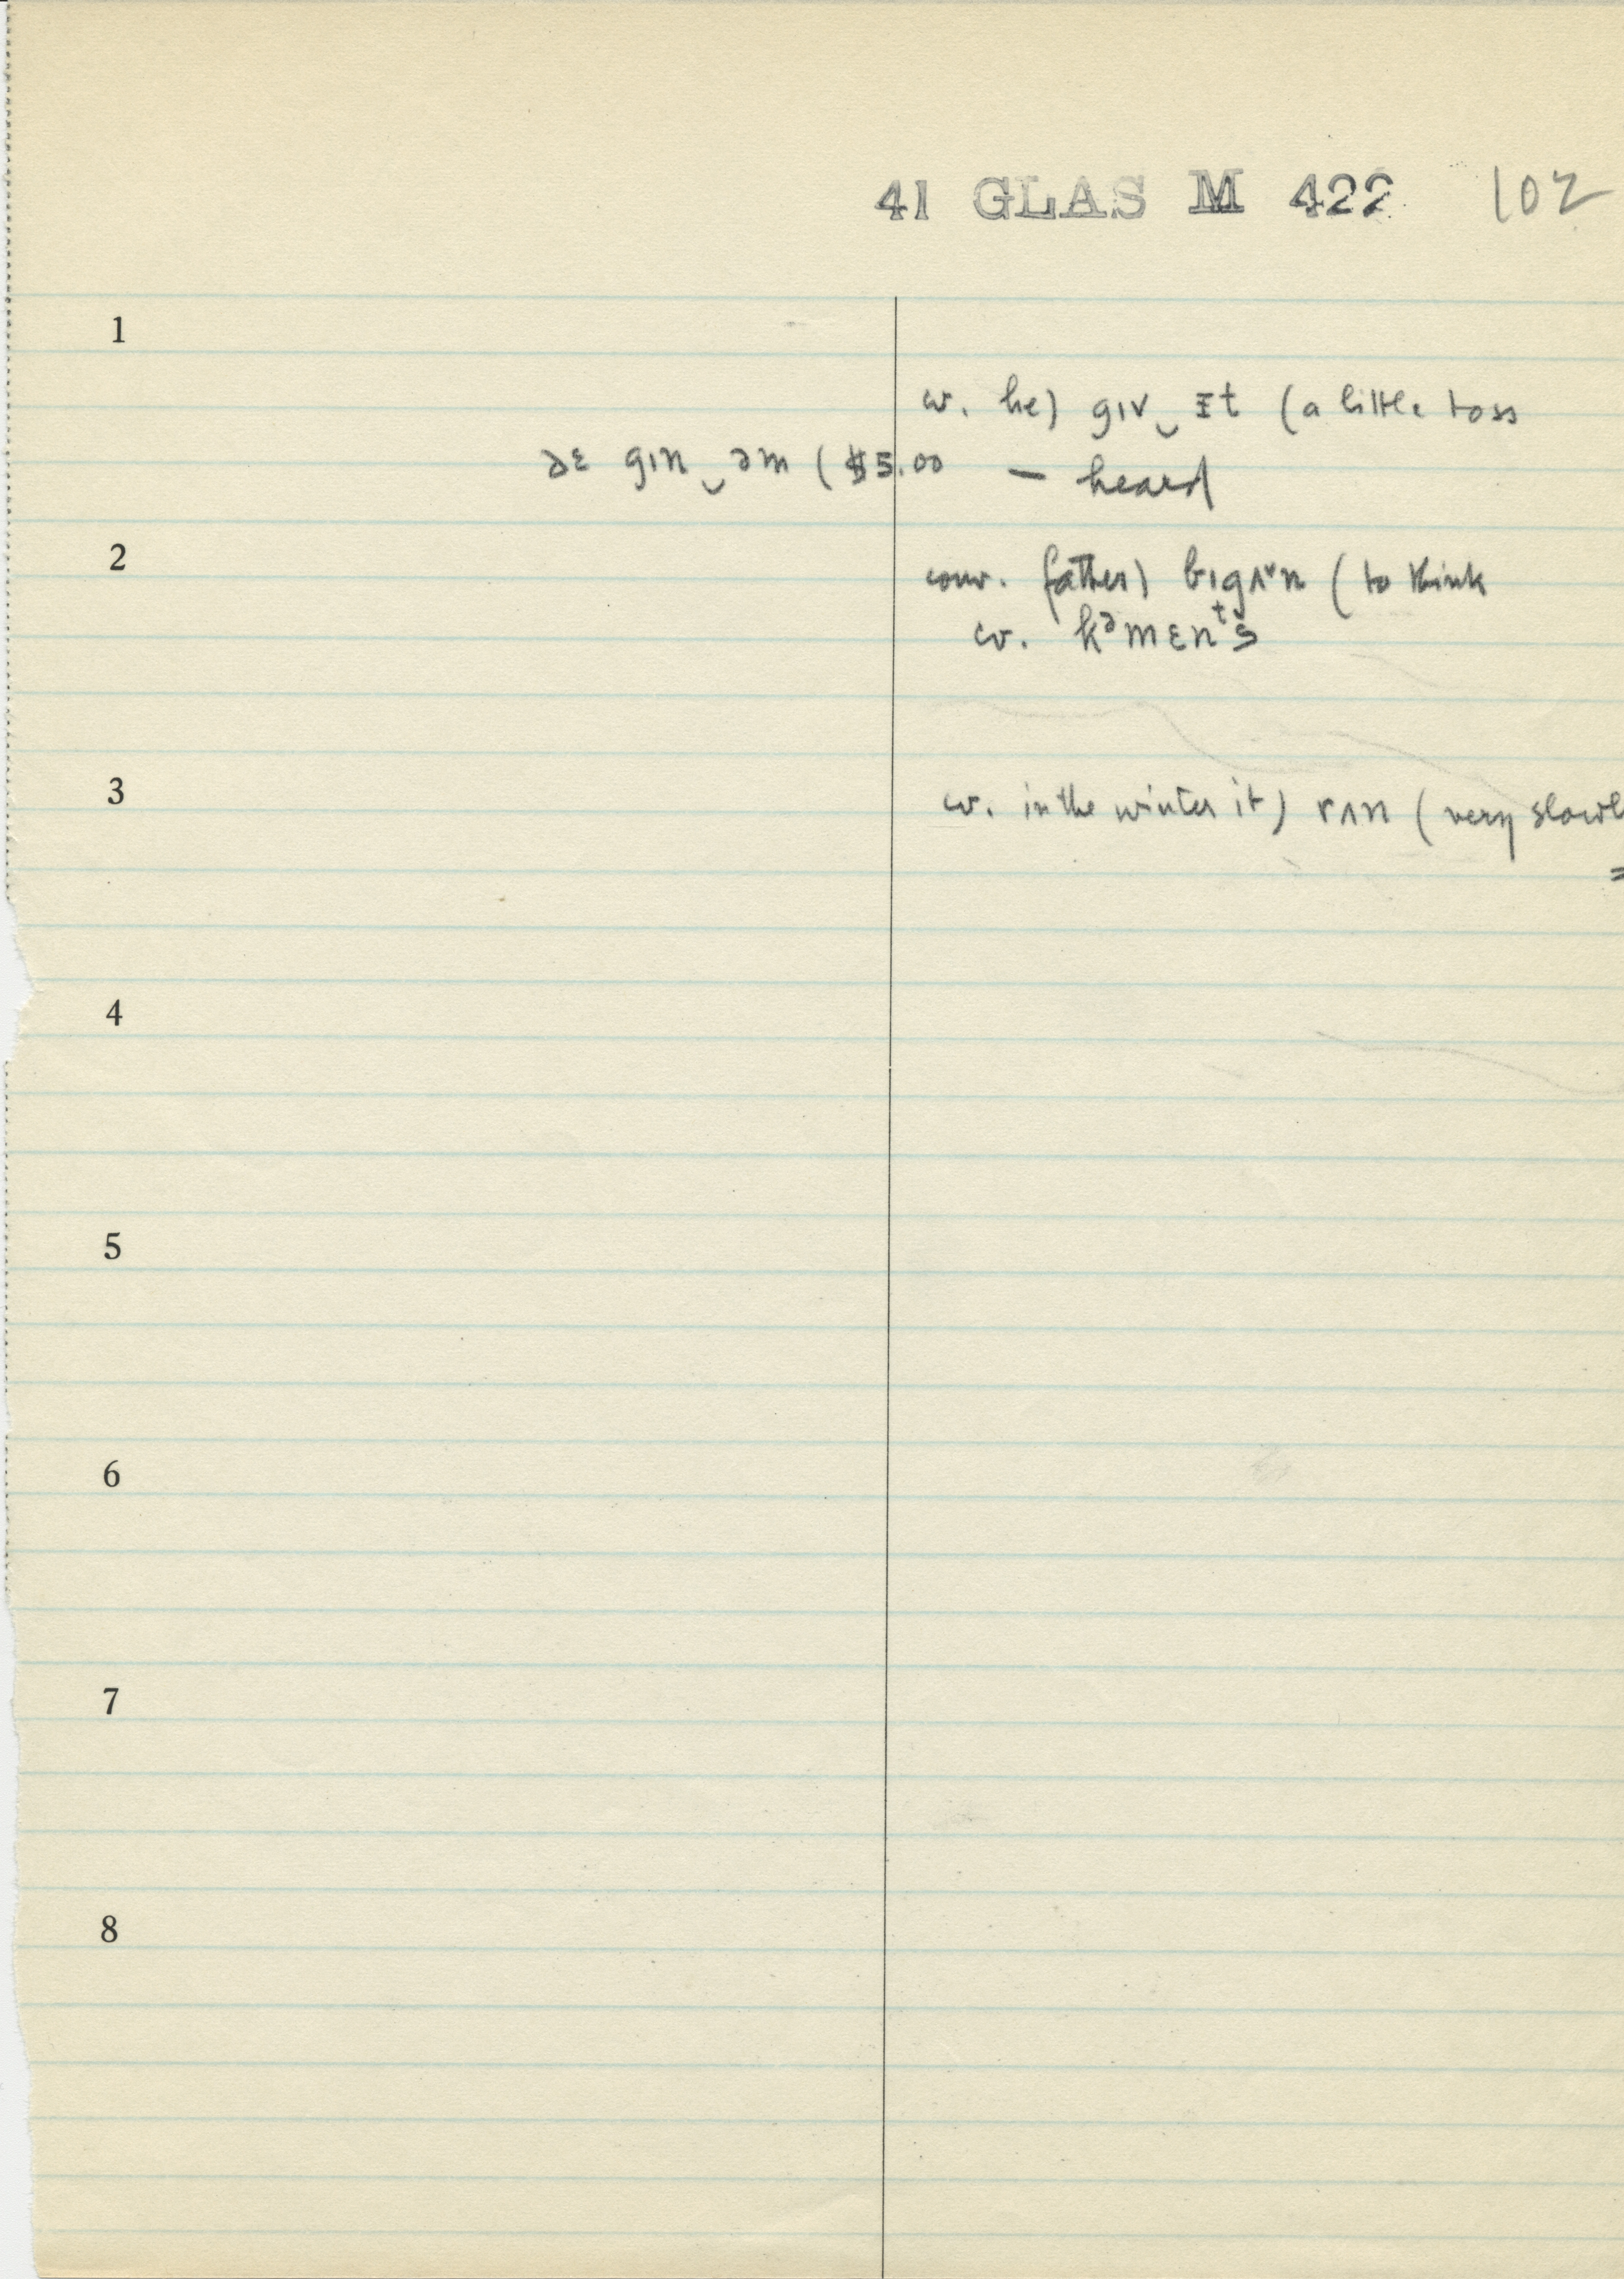 41 GLAS M 422 102
1
cv. he) gɪv‿ɪt (a little toss
ðɛ gɪn‿əm ($5.00 — heard
2
conv. father) bɪgʌ˅n (to think
cv. kᵊmɛnᵗs
3
cv. in the winter it) rʌn (very slowl
=
4
5
6
7
8